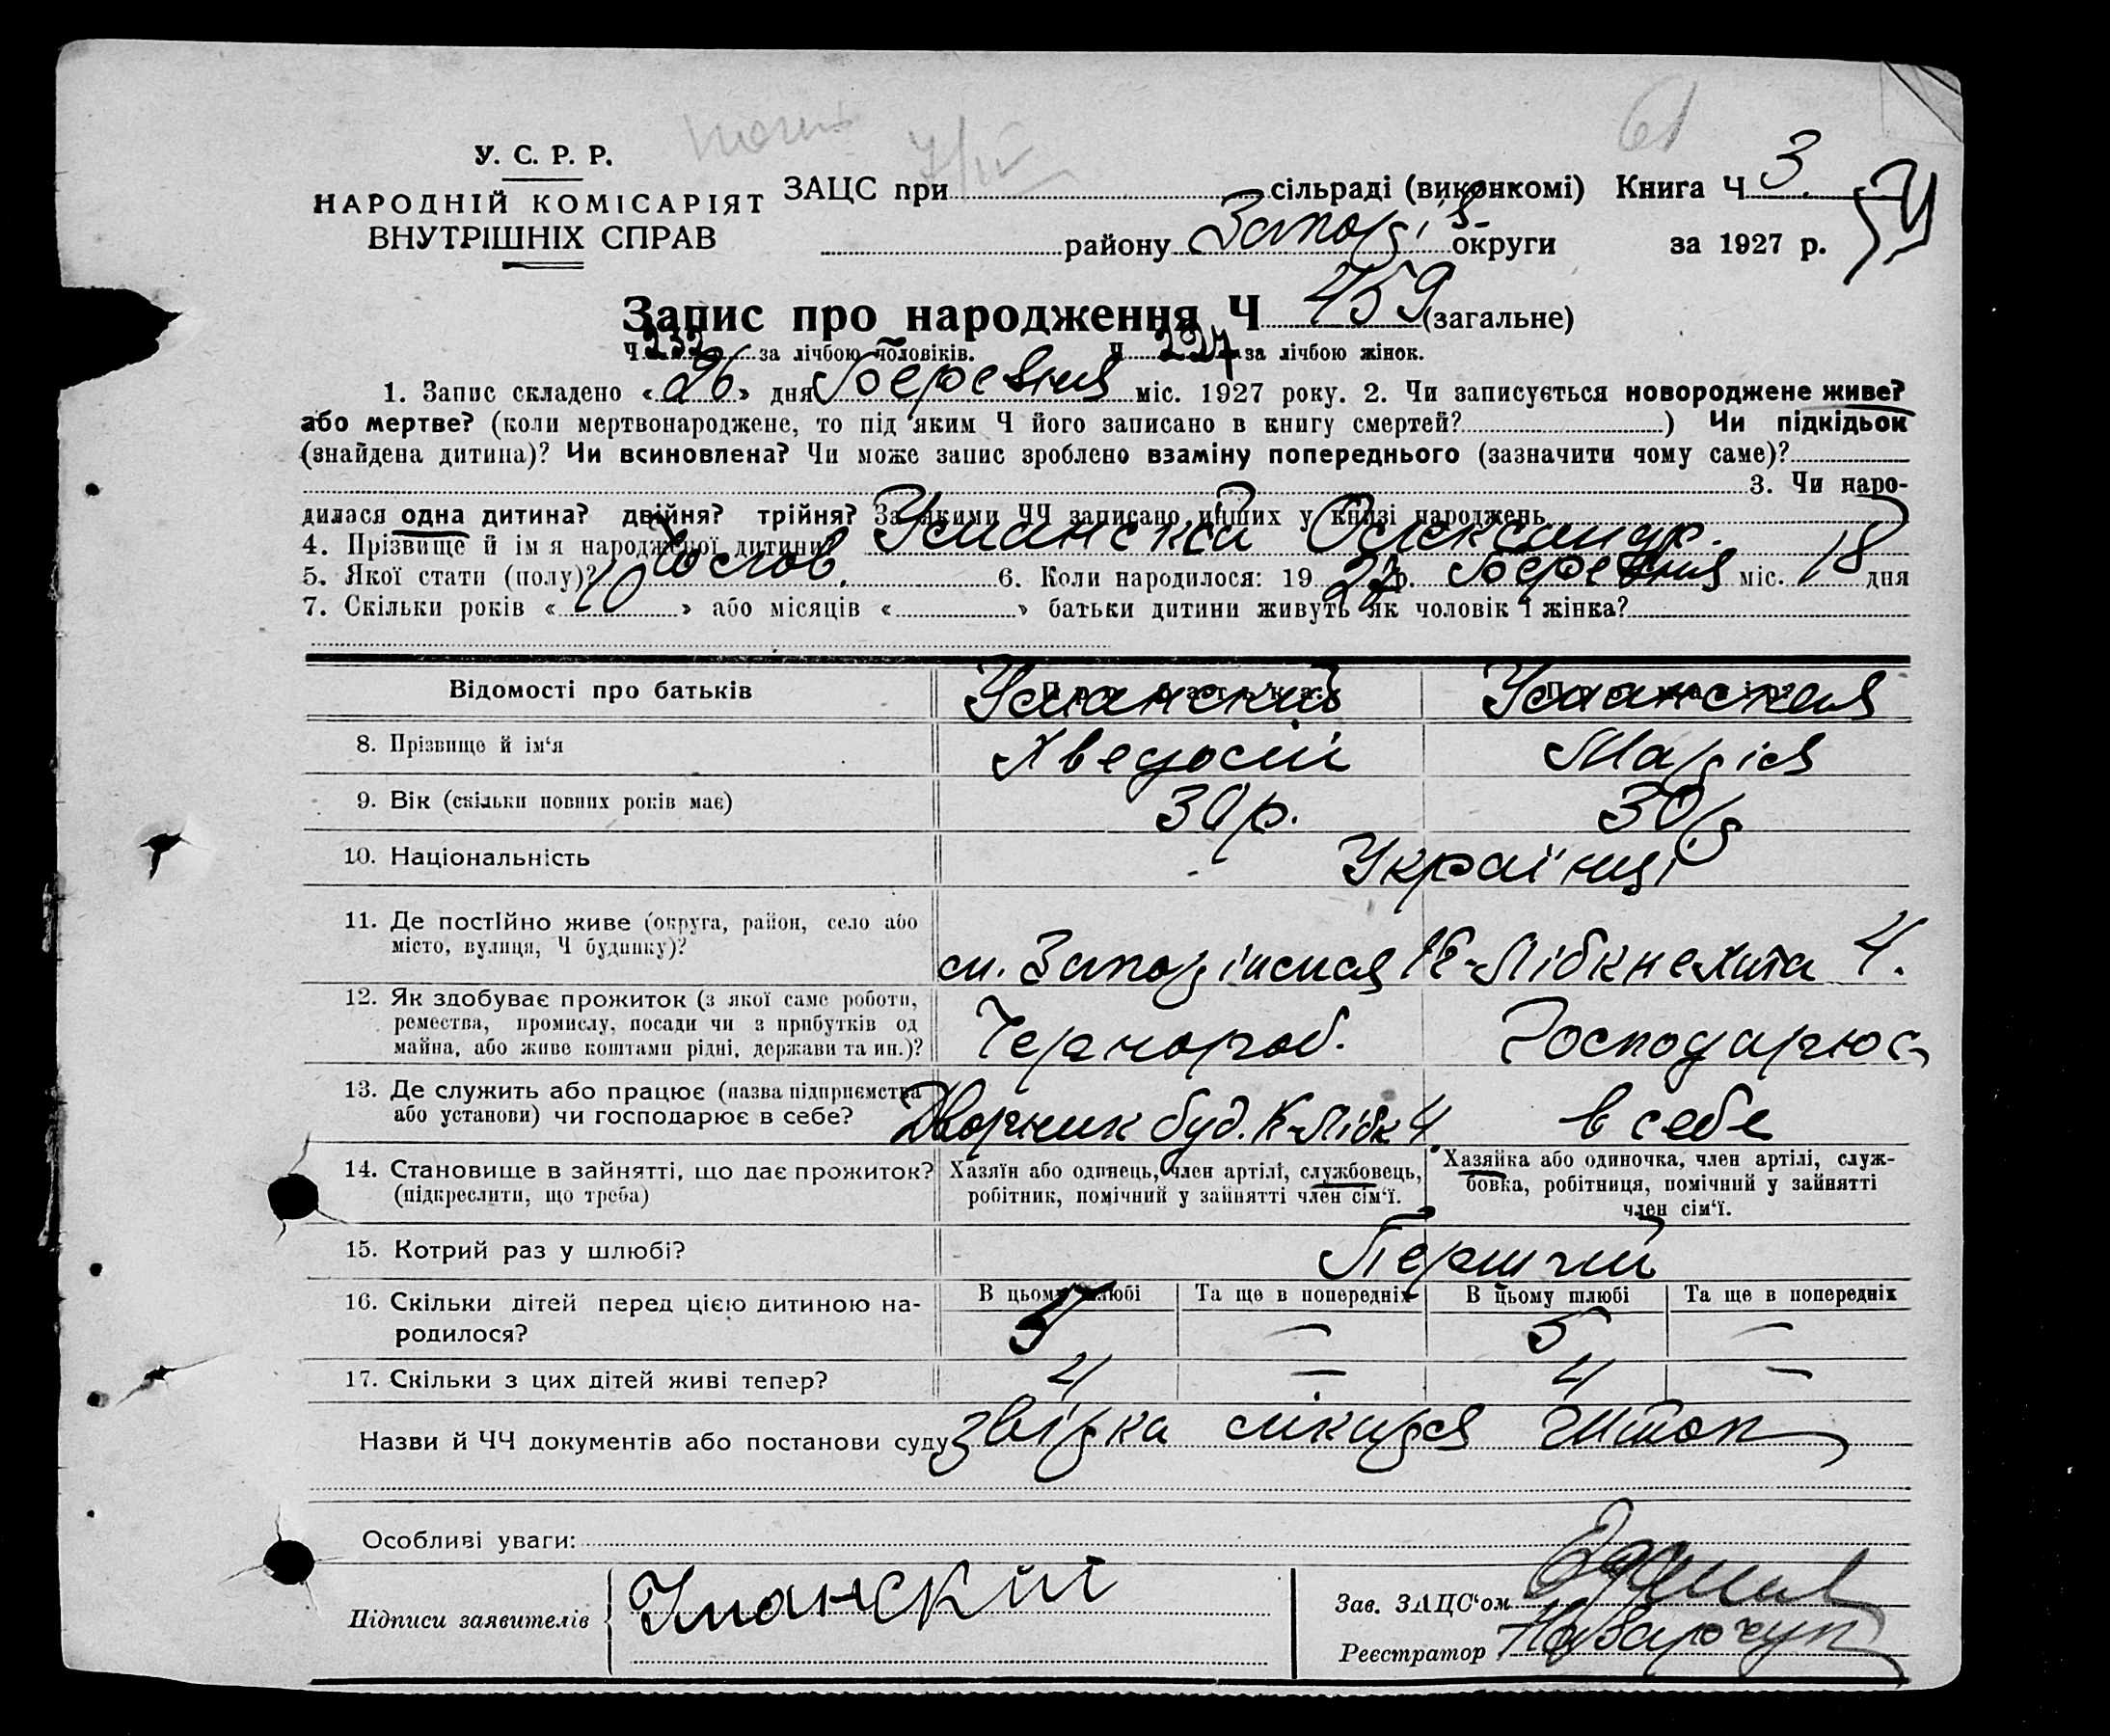 61
У. С. Р. Р.
НАРОДНІЙ КОМІСАРІЯТ
ВНУТРІШНІХ СПРАВ
ЗАЦС при сільраді (виконкомі) Книга Ч 3.
району Запоріз. округи за 1927 р.
Запис про народження Ч 459 (загальне)
Ч 232 за лічбою чоловіків. Ч 227 за лічбою жінок.
1. Запис складено «26» дня березня міс. 1927 року. 2. Чи записується новороджене живе?
або мертве? (коли мертвонароджене, то під яким Ч його записано в книгу смертей? ) Чи підкідьок
(знайдена дитина)? Чи всиновлена? Чи може запис зроблено взаміну попереднього (зазначити чому саме)?
3. Чи наро-
дилася одна дитина? двійня? трійня? За якими ЧЧ записано инших у книзі народжень
4. Прізвище й ім я народженої дитини Уманский Олександр.
5. Якої стати (полу)? Чолов. 6. Коли народилося: 19 27 р. березня міс. 18 дня
7. Скільки років «10» або місяців « » батьки дитини живуть як чоловік і жінка?
Відомості про батьків Уманский Уманская
8. Прізвище й ім‘я Хведосій Марія
9. Вік (скільки повних років має) 30 р. 30 р
10. Національність Українці
11. Де постійно живе (округа, район, село або
місто, вулиця, Ч будинку)?
м. Запоріжжя К-Лібкнехта 4.
12. Як здобуває прожиток (з якої саме роботи,
ремества, промислу, посади чи з прибутків од
майна, або живе коштами рідні, держави та ин.)?
Чернороб. Господарює
13. Де служить або працює (назва підприємства
або установи) чи господарює в себе?
Дворник буд. К-Лібк 4. в себе
14. Становище в зайнятті, що дає прожиток?
(підкреслити, що треба)
Хазяїн або одинець, член артілі, службовець,
робітник, помічний у зайнятті член сім‘ї.
Хазяйка або одиночка, член артілі, служ-
бовка, робітниця, помічний у зайнятті
член сім‘ї.
15. Котрий раз у шлюбі? Перший
16. Скільки дітей перед цією дитиною на-
родилося?
В цьому шлюбі Та ще в попередніх В цьому шлюбі Та ще в попередніх
5 — 5 —
17. Скільки з цих дітей живі тепер? 4 — 4 —
Назви й ЧЧ документів або постанови суду
Особливі уваги:
Підписи заявителів Уманский
Зав. ЗАЦС‘ом
Реєстратор